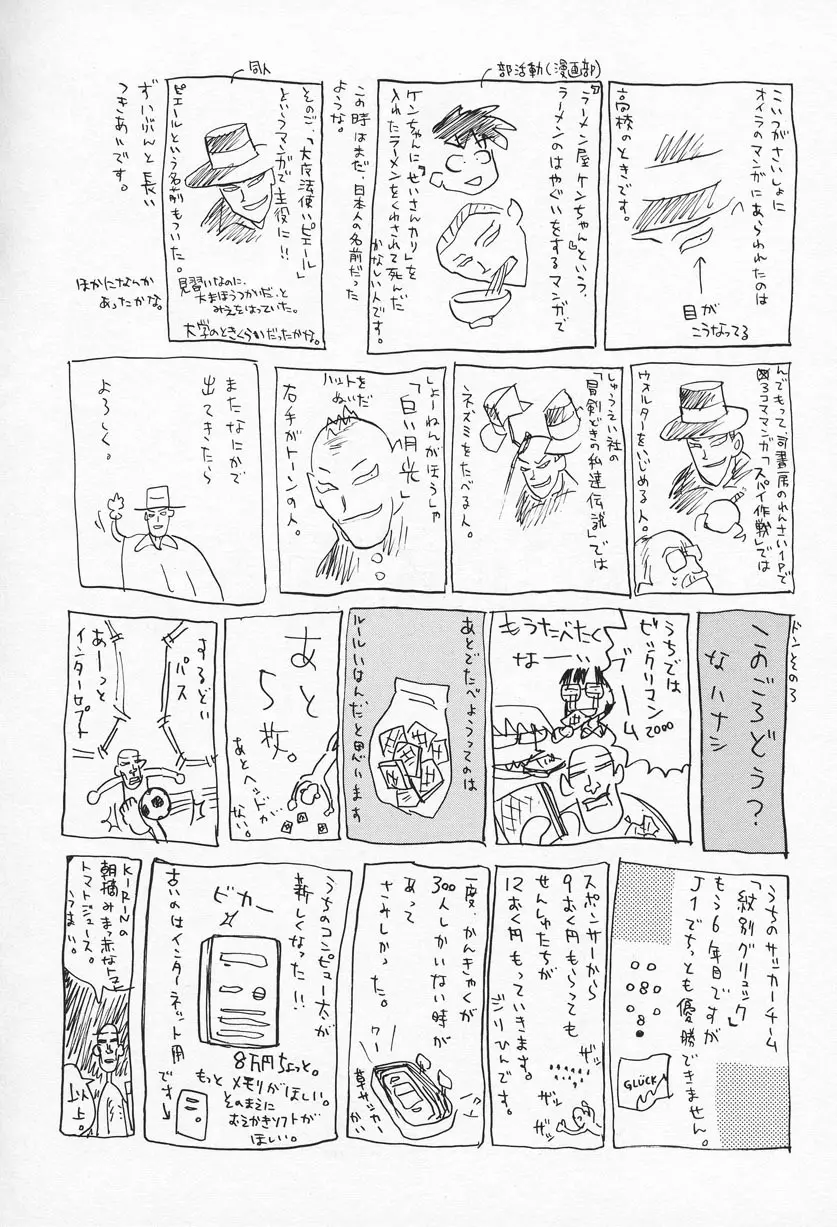 こいつがさいしょに
オイラのマンガにあらわれたのは
高校のときです。
目が
こうなってる
部活動(漫画部)
「ラーメン屋ケンちゃん」という、
ラーメンのはやぐいをするマンガで
ケンちゃんに「せいさんカリ」を
入れたラーメンをくわされて死んだ
かなしい人です。
この時はまだ、日本人の名前だった
ような。
同人
そのご、「大魔法使いピエール」
というマンガで主役に!!
ピエールという名前もついた。
見習いなのに、
大まほうつかいだ、と
みえをはっていた。
大学のときくらいだったかな。
ずいぶんと長い
つきあいです。
ほかになんか
あったかな。
んでもって、司書房のれんさい1Pで
3コママンガ「スパイ作戦」では
ウォルターをいじめる人。
しゅうえい社の
「冒剣どきの私達伝説」では
ネズミをたべる人。
しょーねんがほうしゃ
「白い月光」
ハットを
ぬいだ
右手がトーンの人。
またなにかで
出てきたら
よろしく。
ドンその3
このごろどう?
なハナシ
うちでは
ビックリマン
2000
ブーム
もうたべたく
なーい
あとでたべようってのは
ルールいはんだと思います
あと
5枚。
あとヘッドが
ない。
するどい
パス
あーっと
インターセプト
うちのサッカーチーム
「紋別グリュック」
もう6年目ですが
J1でちっとも優勝できません。
GLÜCK
スポンサーから
9おく円もらっても
せんしゅたちが
12おく円もっていきます。
ヂリひんです。
ザッ
ザッ
ザッ
一度、かんきゃくが
300人しかいない時が
あって
さみしかった。
ワー
草サッカー
かい
うちのコンピュー太が
新しくなった!!
ピカー
8万円ちょっと。
もっとメモリがほしい。
そのまえに
おえかきソフトが
ほしい。
古いのはインターネット用
です→
KIRINの
朝摘みまっ赤なトマト
トマトジュース。
うまい。
以上。